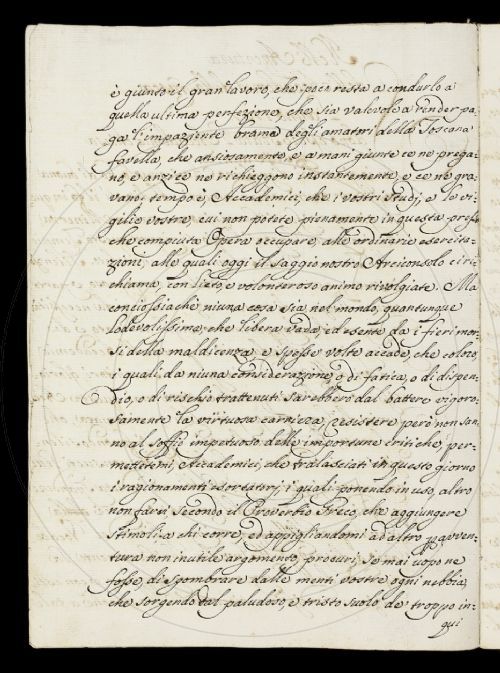 è giunto il gran lavoro, che poco resta a condurlo a
quella ultima perfezione, che sia valevole a render pa-
ga l'impaziente brama degli amatori della Toscana
favella, che ansiosamente, e a mani giunte ce ne prega-
no, e anzi ce ne richieggono instantemente, e ce ne gra-
vano; tempo è, Accademici, che i vostri studj, e le vi-
gilie vostre, cui non potete pienamente in questa presso
che compiuta Opera occupare, alle ordinarie esercita-
zioni, alle quali oggi il saggio nostro Arciconsolo ci ri-
chiama, con lieto, e volonteroso animo rivolgiate. Ma
conciossiachè niuna cosa sia nel mondo, quantunque
lodevolissima, che libera vada, ed esente da i fieri mor-
si della maldicenza, e spesse volte accade, che coloro,
i quali da niuna considerazione, o di fatica, o di dispen-
dio, o di rischio trattenuti sarebbero dal battere vigoro-
samente la virtuosa carriera, resistere però non san-
no al soffio impetuoso delle importune critiche, per-
mettetemi, Accademici, che tralasciati in questo giorno
i ragionamenti esortatorj, i quali ponendo in uso, altro
non farei secondo il Proverbio Greco, che aggiungere
stimoli a chi corre, ed appigliandomi ad altro p avven-
tura non inutile argomento, procuri, se mai uopo ne
fosse, di sgombrare dalle menti vostre ogni nebbia,
che sorgendo dal paludoso, e tristo suolo de' troppo in-
qui